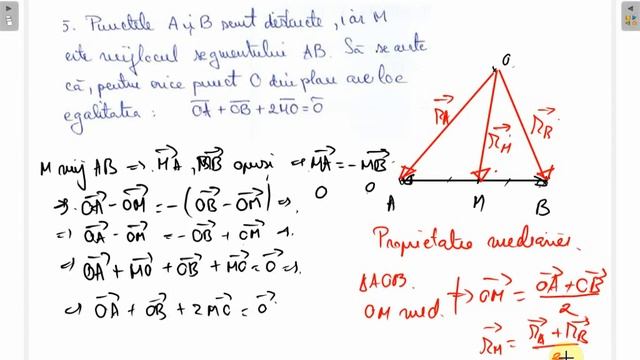 5. Punctele A și B sunt distincte, iar M
este mijlocul segmentului AB. Să se arate
că, pentru orice punct O din plan are loc
egalitatea: OA + OB + 2MO = O
M mij AB => MA, MB opuși => MA = -MB.
O O
=> OA - OM = -(OB - OM) =>
=> OA - OM = -OB + OM =>
=> OA + MO + OB + MO = O =>
=> OA + OB + 2MO = O
O
r_A
r_M
r_B
A M B
Proprietatea medianei.
ΔAOB
OM med. => OM = (OA + OB) / 2
r_M = (r_A + r_B) / 2